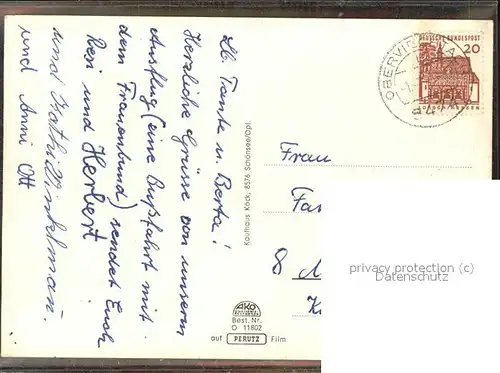 Lb. Tante u. Berta!
Herzliche Grüsse von unserm
Ausflug (eine Bußfahrt mit
dem Frauenbund) sendet Euch
Resi und Herbert
und Kathi Winkelmann.
und Anni Ott
Kaufhaus Köck, 8576 Schönsee/Opf.
AKO
Best. Nr.
O 11802
auf PERUTZ Film
DEUTSCHE BUNDESPOST
20
OBERVIE
Frau
Fa
8 M
privacy protection (c)
Datenschutz